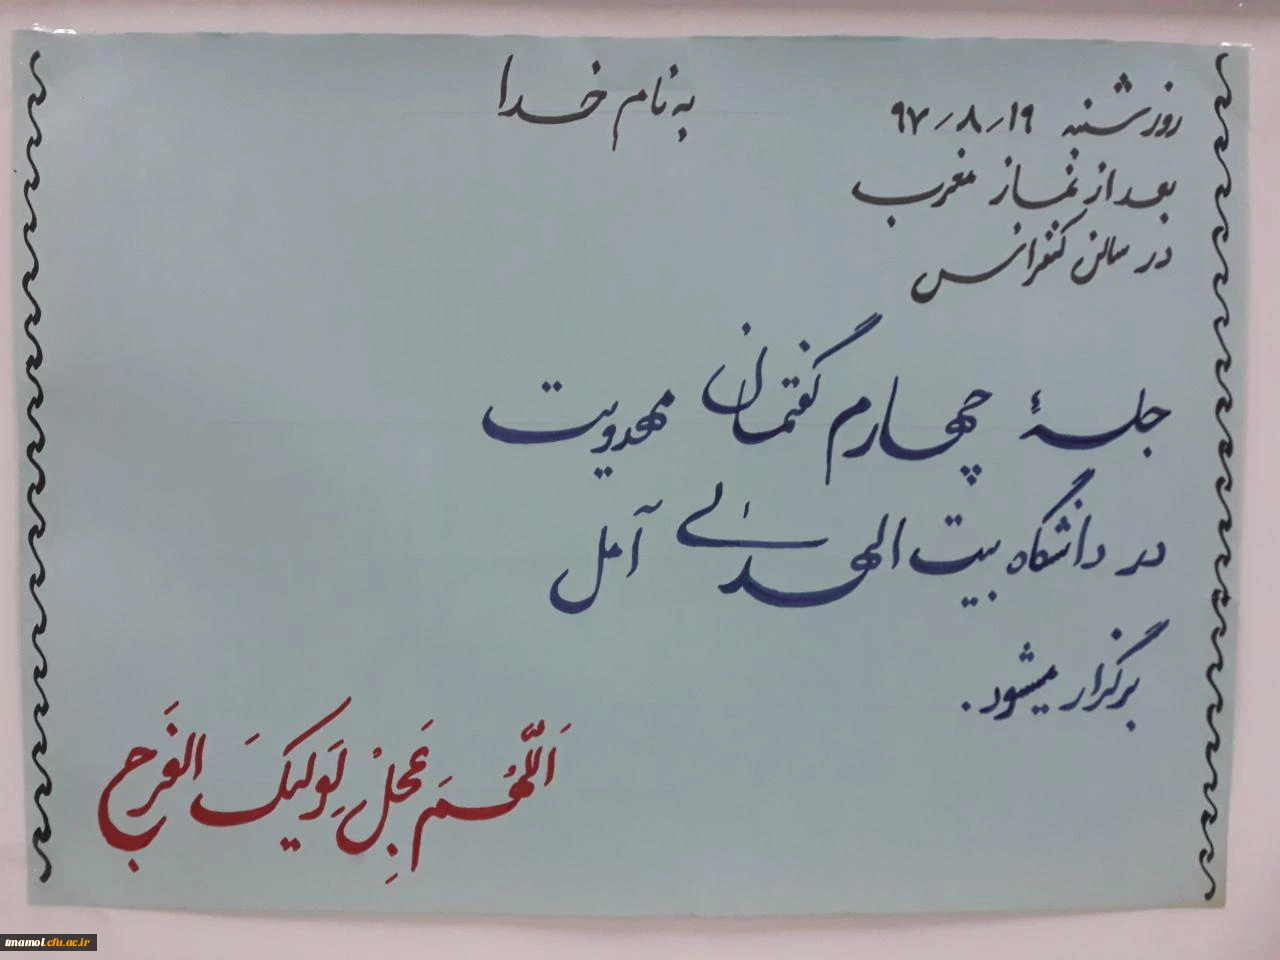 به نام خدا
روز شنبه ۹۷/۸/۱۹
بعد از نماز مغرب
در سالن کنفرانس
جلسهٔ چهارم گفتمان مهدویت
در دانشگاه بیت الهدیٰ آمل
برگزار میشود.
اَللّهُمَ عَجِلْ لِوَلیکَ الفَرَج
tmamol.cfu.ac.ir